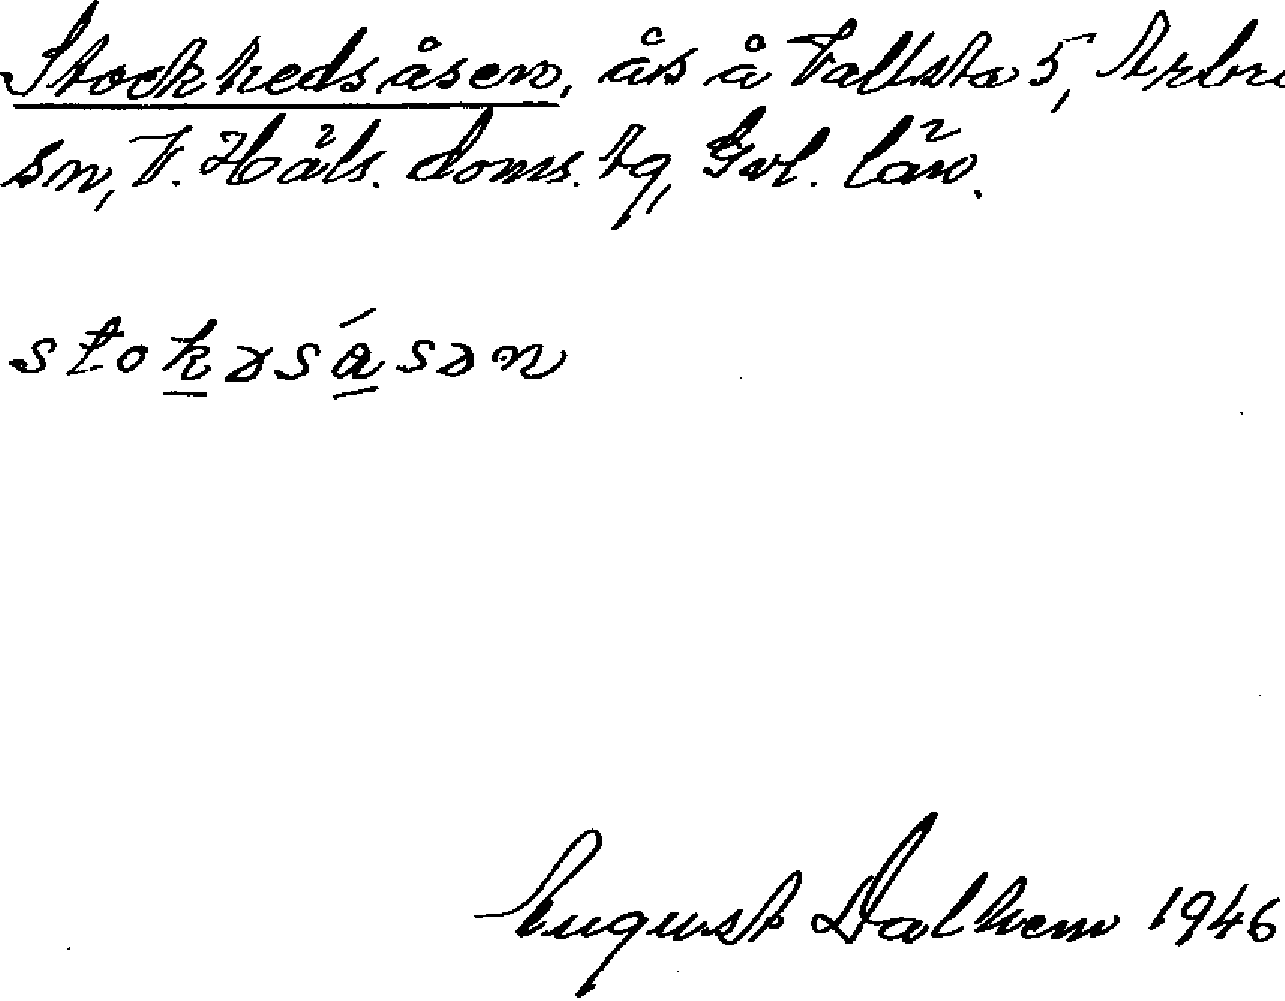 Stockhedsåsen, ås å Vallsta 5, Arbrå
sn, V. Häls. doms. tg, Gvl. län.
stokəsåsən
August Dalhem 1946